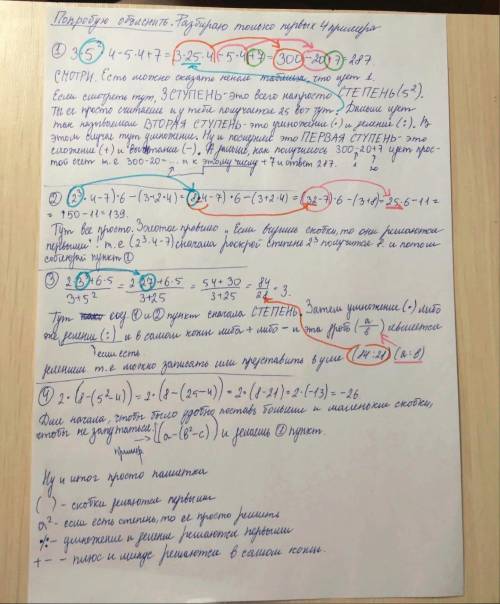 Попробую объяснить. Разбираю только первых 4 примера
① 3·5²·4-5·4+7=3·25·4-5·4+7=300-20+7=287.
СМОТРИ. Есть можно сказать некая таблица что идет 1.
Если смотреть тут, 3 СТУПЕНЬ-это всего напросто СТЕПЕНЬ(5²).
Ты ее просто считаешь и у тебя получается 25 вот тут. Дальше идет
так называемая ВТОРАЯ СТУПЕНЬ-это умножение (·) и деление (:). В
этом случае тут умножение. Ну и последнее это ПЕРВАЯ СТУПЕНЬ-это
сложение (+) и вычитание (-). А дальше, как получилось 300-20+7 идет прос-
той счет т.е 300-20=... и к этому числу +7 и ответ 287.
② (2³·4-7)·6-(3+2·4)=(8·4-7)·6-(3+2·4)=(32-7)·6-(3+8)=25·6-11=
=150-11=139.
Тут все просто. Золотое правило, если видишь скобки, то они решаются
первыми! т.е (2³·4-7) сначала раскрой степень 2³ получится ?. и потом
соблюдай пункт ①
③ 2·3³+6·5 / 3+5² = 2·27+6·5 / 3+25 = 54+30 / 3+25 = 84 / 28 = 3.
Тут ①и② пункт сначала СТЕПЕНЬ. Затем умножение (·) либо
деление (:) и в самом конце либо + либо - и эта дробь (a/b) является
если есть
делением т.е можно записать или представить в уме (84:21) (a:b)
④ 2·(8-(5²-4))=2·(8-(25-4))=2·(8-21)=2·(-13)=-26.
Для начала, чтобы было удобно поставь большие и маленькие скобки,
чтобы не запутаться. [(a-(b²-c)) и делаешь ① пункт.
пример
Ну и итог просто памятка
( ) - скобки решаются первыми
a² - если есть степень, то ее просто решить
умножение и деление решаются первыми
+ - - плюс и минус решаются в самом конце.